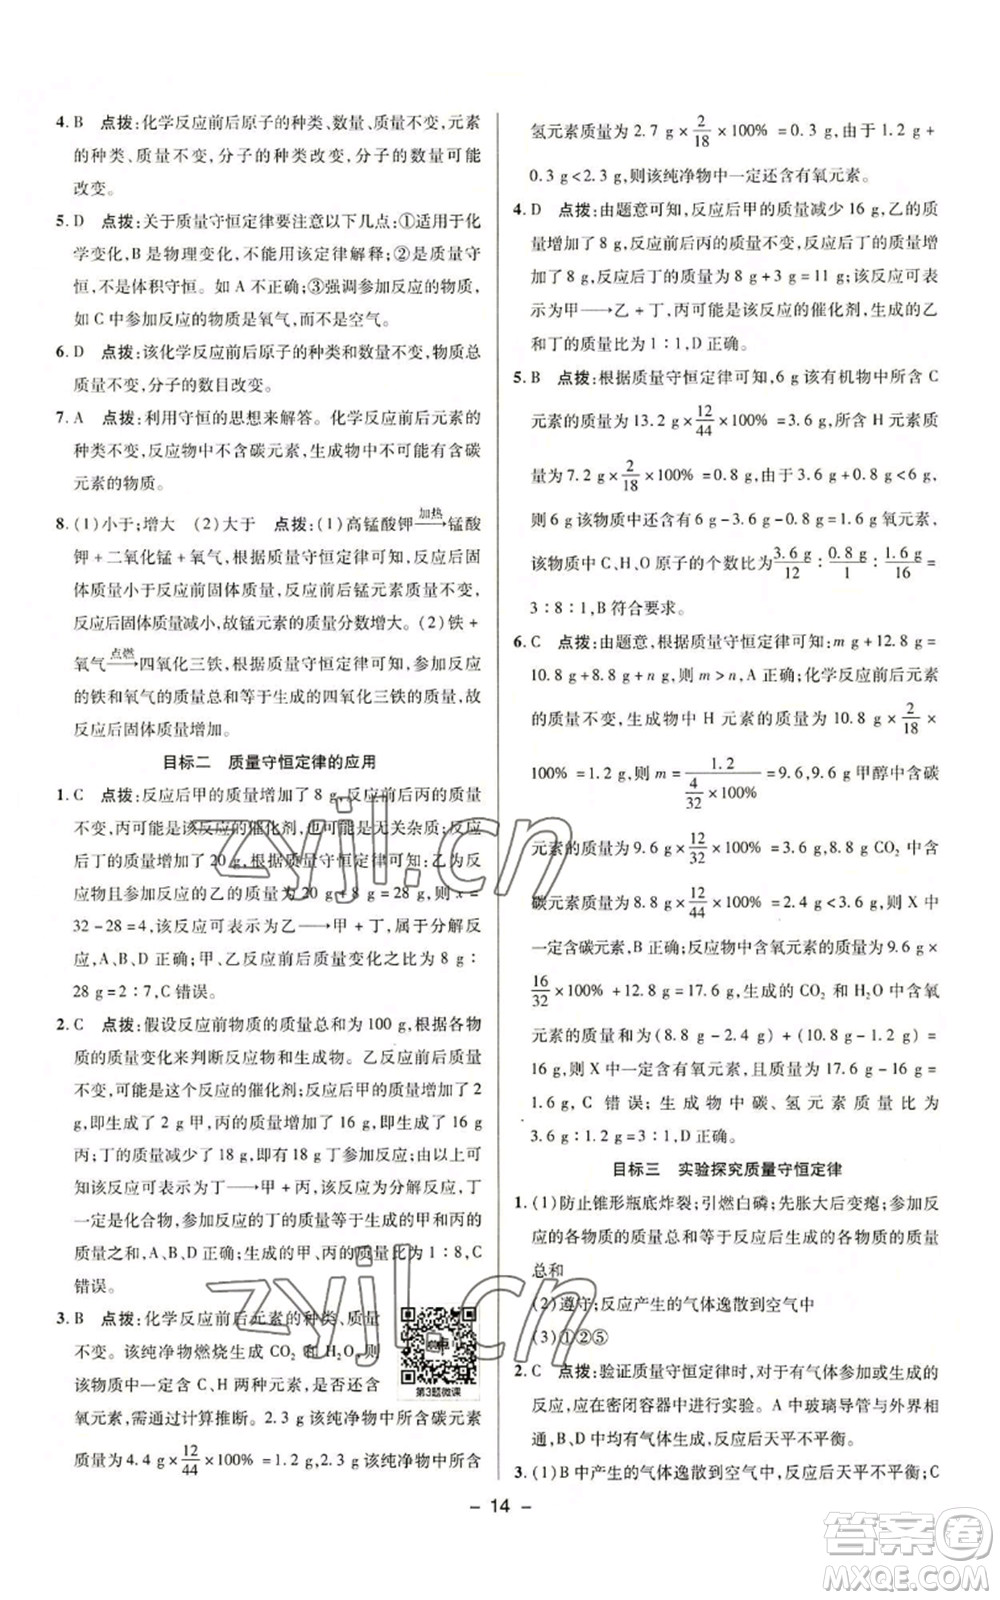 4. B　点拨：化学反应前后原子的种类、数量、质量不变，元素
的种类、质量不变，分子的种类改变，分子的数量可能
改变。
5. D　点拨：关于质量守恒定律要注意以下几点：①适用于化
学变化，B是物理变化，不能用该定律解释；②是质量守
恒，不是体积守恒。如 A 不正确；③强调参加反应的物质，
如 C 中参加反应的物质是氧气，而不是空气。
6. D　点拨：该化学反应前后原子的种类和数量不变，物质总
质量不变，分子的数目改变。
7. A　点拨：利用守恒的思想来解答。化学反应前后元素的
种类不变，反应物中不含碳元素，生成物中不可能有含碳
元素的物质。
8. (1)小于；增大　(2)大于　点拨：(1)高锰酸钾 加热→ 锰酸
钾＋二氧化锰＋氧气，根据质量守恒定律可知，反应后固
体质量小于反应前固体质量。反应前后锰元素质量不变，
反应后固体质量减小，故锰元素的质量分数增大。(2)铁＋
氧气 点燃→ 四氧化三铁，根据质量守恒定律可知，参加反应
的铁和氧气的质量总和等于生成的四氧化三铁的质量，故
反应后固体质量增加。
目标二　质量守恒定律的应用
1. C　点拨：反应后甲的质量增加了 8 g，反应前后丙的质量
不变，丙可能是该反应的催化剂，也可能是无关杂质；反应
后丁的质量增加了 20 g，根据质量守恒定律可知：乙为反
应物且参加反应的乙的质量为 20 g＋8 g＝28 g，则 x＝
32－28＝4，该反应可表示为乙→甲＋丁，属于分解反
应，A、B、D 正确；甲、乙反应前后质量变化之比为 8 g：
28 g＝2：7，C 错误。
2. C　点拨：假设反应前物质的质量总和为 100 g，根据各物
质的质量变化来判断反应物和生成物。乙反应前后质量
不变，可能是这个反应的催化剂；反应后甲的质量增加了 2
g，即生成了 2 g 甲，丙的质量增加了 16 g，即生成了 16 g
丙；丁的质量减少了 18 g，即有 18 g 丁参加了反应，因
此，该反应可以表示为：丁→甲＋丙，属于分解反应，丁
一定是化合物，参加反应的丁的质量等于生成的甲和丙的
质量之和，A、B、D 正确；生成的甲、丙的质量比为 1：8，C
错误。
3. B　点拨：化学反应前后元素的种类、质量
不变。该纯净物燃烧生成 CO₂ 和 H₂O，则
该物质中一定含 C、H 两种元素，是否含
氧元素，需通过计算推断。2.3 g 该纯净物中所含碳元素
质量为 4.4 g×12/44×100%＝1.2 g，该纯净物中所含
第3题微课
氢元素质量为 2.7 g×2/18×100%＝0.3 g，由于 1.2 g＋
0.3 g＜2.3 g，则该纯净物中一定还含有氧元素。
4. D　点拨：由题意可知，反应后甲的质量减少 16 g，乙的质
量增加了 8 g，反应前后丙的质量不变，反应后丁的质量增
加了 8 g，反应后丁的质量为 8 g＋3 g＝11 g；该反应可表
示为甲→乙＋丁，丙可能为该反应的催化剂，生成的乙
和丁的质量比为 1：1，D 正确。
5. B　点拨：根据质量守恒定律可知，6 g 该有机物中所含 C
元素的质量为 13.2 g×12/44×100%＝3.6 g，所含 H 元素质
量为 7.2 g×2/18×100%＝0.8 g，由于 3.6 g＋0.8 g＜6 g，
则 6 g 该物质中还含有 6 g－3.6 g－0.8 g＝1.6 g 氧元素，
该物质中 C、H、O 原子的个数比为 3.6 g/12：0.8 g/1：1.6 g/16＝
3：8：1，B 符合要求。
6. C　点拨：由题意，根据质量守恒定律可知：m g＋12.8 g＝
10.8 g＋8.8 g＋n g，则 m＞n，A 正确；化学反应前后元素
的质量不变，生成物中 H 元素的质量为 10.8 g×2/18×
100%＝1.2 g，则 m＝1.2/(4/32)＝9.6，9.6 g 甲醇中含碳
元素的质量为 9.6 g×12/32×100%＝3.6 g，8.8 g CO₂ 中含
碳元素的质量为 8.8 g×12/44×100%＝2.4 g＜3.6 g，则 X 中
一定含碳元素，B 正确；反应物中含氧元素的质量为 9.6 g×
16/32×100%＋12.8 g＝17.6 g，生成的 CO₂ 和 H₂O 中含氧
元素的质量和为（8.8 g－2.4 g）＋（10.8 g－1.2 g）＝
16 g，则 X 中一定含有氧元素，且质量为 17.6 g－16 g＝
1.6 g，C 错误；生成物中碳、氢元素质量比为
3.6 g：1.2 g＝3：1，D 正确。
目标三　实验探究质量守恒定律
1. (1)防止锥形瓶底炸裂；引燃白磷；先胀大后变瘪；参加反
应的各物质的质量总和等于反应后生成的各物质的质量
总和
(2)遵守；反应产生的气体逸散到空气中
(3)①②⑤
2. C　点拨：验证质量守恒定律时，对于有气体参加或生成的
反应，应在密闭容器中进行实验。A 中玻璃导管与外界相
通，B、D 均有气体生成，反应后天平不平衡。
3. (1)B 中产生的气体逸散到空气中，反应后天平不平衡；C
－ 14 －
zyjl.cn
zyjl.cn
答案圈
MXQE.COM